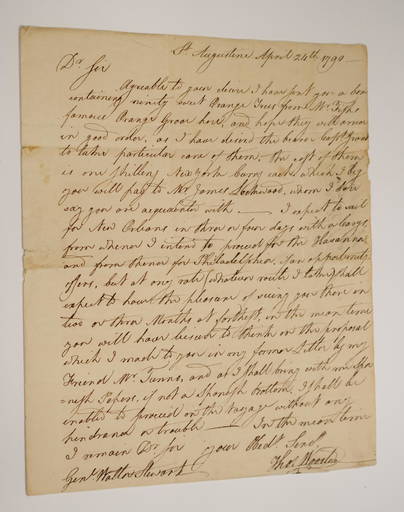 St. Augustine April 24th 1790
Dr Sir
Agreable to your desire I have sent you a box
containing ninety sweet Orange Trees from Mr.
famous Orange Grove here, and hope they will arrive
in good order, as I have desired the bearer Capt.
to take particular care of them. The cost of them
is one shilling New York Curry each which I beg
you will pay to Mr. James Lockwood, whom I dare
say you are acquainted with — I expect to sail
for New Orleans in three or four days with a cargo
from whence I intend to proceed for the Havanna
and from thence for Philadelphia, if an opportunity
offers, but at any rate (whatever route I take) I shall
expect to have the pleasure of seeing you there in
two or three Months at farthest, in the mean time
you will have leisure to think on the proposal
which I made to you in my former Letter by my
Friend Mr. and as I shall bring with me Spa
=nish Papers, if not a Spanish Bottom, I shall be
enabled to proceed on the voyage without any
hindrance or trouble — In the mean time
I remain Dr Sir your Obedt Servt
Genl. Walter Stewart Thos. Wooster